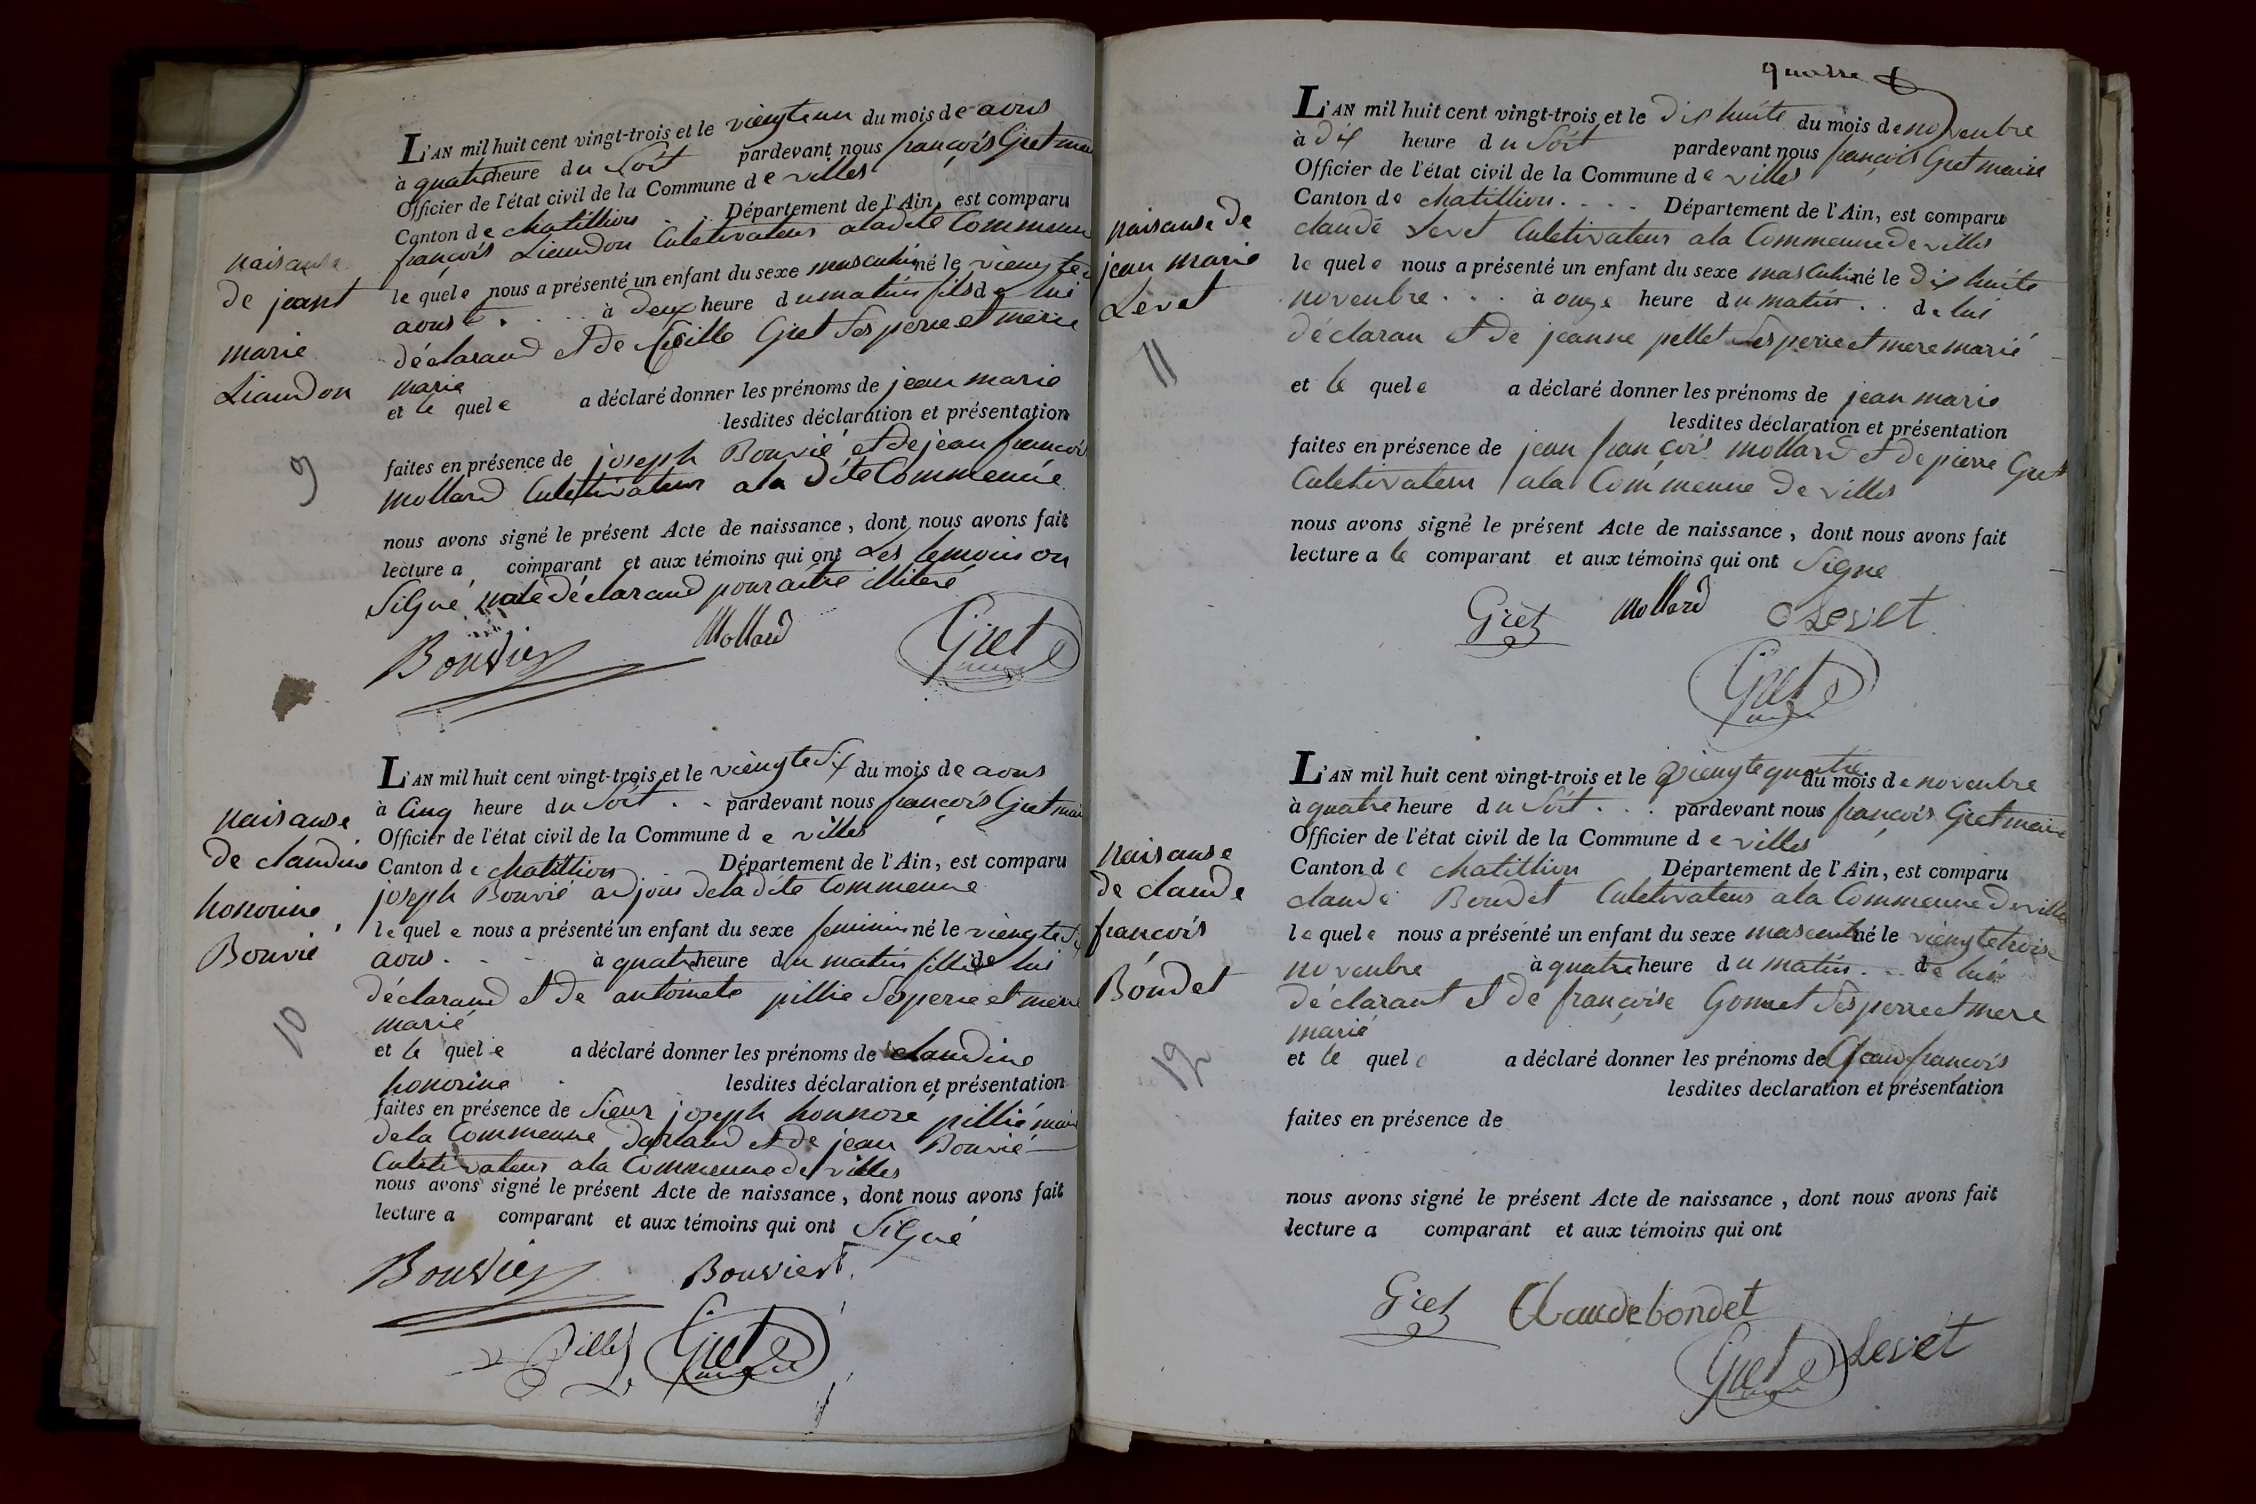 L'AN mil huit cent vingt-trois et le viengteun du mois de aous
à quatre heure du Soit pardevant nous françois Gret maire
Officier de l'état civil de la Commune de villes
Canton de chatillion . . Département de l'Ain, est comparu
françois Liaudon Culetivateur a la dite Commeune
le quele nous a présenté un enfant du sexe masculin né le viengte
aoust . . . . à deux heure du matin fils de lui
déclarand et de Gret Ses perre et merre
marie
et le quele a déclaré donner les prénoms de jean marie
lesdites déclaration et présentation
faites en présence de joseph Bouvié et de jean francois
mollard Culetivateur a la dite Commeune
nous avons signé le présent Acte de naissance, dont nous avons fait
lecture a comparant et aux témoins qui ont Les temoins on
Silgné déclarand pour aitre illiteré
Bouvier Mollard Gret maire
naisause
de jeant
marie
Liaudon
9
L'AN mil huit cent vingt-trois et le viengte Six du mois de aous
à Cinq heure du Soit . . pardevant nous françois Gret maire
Officier de l'état civil de la Commune de villes
Canton de chatillion Département de l'Ain, est comparu
joseph Bouvié adjoin de la dite Commeune
le quele nous a présenté un enfant du sexe feminin né le viengte Six
aous . . . à quatre heure du matin fillie de lui
déclarand et de antoinete pillie Ses perre et merre
marié
et le quele a déclaré donner les prénoms de claudine
honorine lesdites déclaration et présentation
faites en présence de Sieur joseph honnoré pillié maire
de la Commeune darland et de jean Bouvié
Culetivateur a la Commeune de villes
nous avons signé le présent Acte de naissance, dont nous avons fait
lecture a comparant et aux témoins qui ont Silgné
Bouvier Bouviert
Gret maire
naisause
de claudine
honorine
Bouvié
10
quatre
L'AN mil huit cent vingt-trois et le Dix huite du mois de novenbre
à Dix heure du Soit pardevant nous françois Gret maire
Officier de l'état civil de la Commune de villes
Canton de chatillion . . . . Département de l'Ain, est comparu
claude Levet Culetivateur a la Commeune de villes
le quele nous a présenté un enfant du sexe masculin né le Dix huite
novenbre . . . à onze heure du matin . . de lui
déclaran et de jeanne pellet Ses perre et mere marié
et le quele a déclaré donner les prénoms de jean marie
lesdites déclaration et présentation
faites en présence de jean françois mollard et de pierre Gret
Culetivateur a la Commeune de villes
nous avons signé le présent Acte de naissance, dont nous avons fait
lecture a le comparant et aux témoins qui ont Signe
Gret Mollard C Levet
Gret maire
naisause de
jean marie
Levet
11
L'AN mil huit cent vingt-trois et le viengte quatre du mois de novenbre
à quatre heure du Soit . . . pardevant nous françois Gret maire
Officier de l'état civil de la Commune de villes
Canton de chatillion Département de l'Ain, est comparu
claude Bondet Culetivateur a la Commeune de villes
le quele nous a présenté un enfant du sexe masculin né le viengte trois
novenbre à quatre heure du matin . . de lui
déclarant et de françoise Gonnet Ses perre et mere
marié
et le quele a déclaré donner les prénoms de francois
lesdites declaration et présentation
faites en présence de
nous avons signé le présent Acte de naissance, dont nous avons fait
lecture a comparant et aux témoins qui ont
Gret Claude bondet
Gret maire Levet
naisause
de claude
francois
Bondet
12